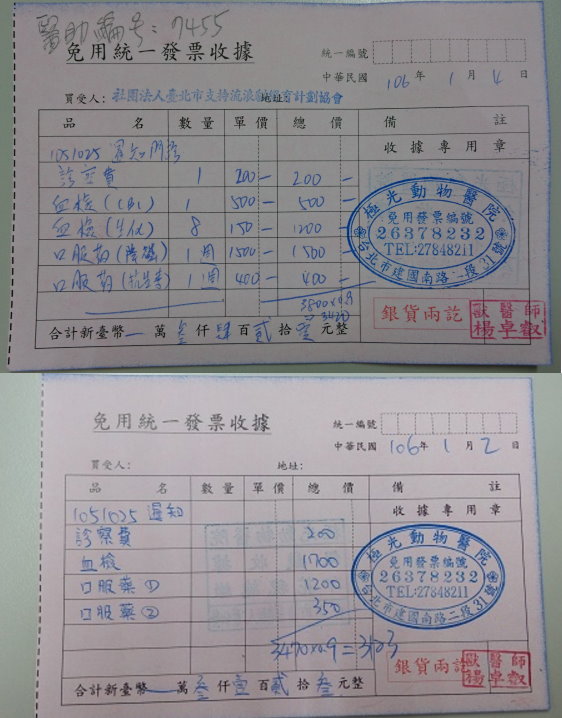 醫助編號:7455
免用統一發票收據
統一編號
中華民國 106年 1月 4日
買受人: 社團法人臺北市支持流浪 計劃協會
地址:
品 名 數量 單價 總價 備 註
收據專用章
1051025 遲知門診
診察費 1 200- 200-
血檢(CBC) 1 500- 500-
血檢(生化) 8 150- 1200-
口服藥 1週 1500- 1500-
口服藥(抗生素) 1週 400- 400-
3800×0.9
3420
極光動物醫院
免用發票編號
26378232
TEL:27848211
台北市建國南路二段31號
銀貨兩訖
獸醫師
楊卓叡
合計新臺幣 萬 參 仟 肆 百 貳 拾 元整
免用統一發票收據
統一編號
中華民國 106年 1月 2日
買受人: 地址:
品 名 數量 單價 總價 備 註
收據專用章
1051025 遲知
診察費 200
血檢 1700
口服藥① 1200
口服藥② 350
3470×0.9=
極光動物醫院
免用發票編號
26378232
TEL:27848211
台北市建國南路二段31號
銀貨兩訖
獸醫師
楊卓叡
合計新臺幣 萬 參 仟 壹 百 貳 拾 參 元整